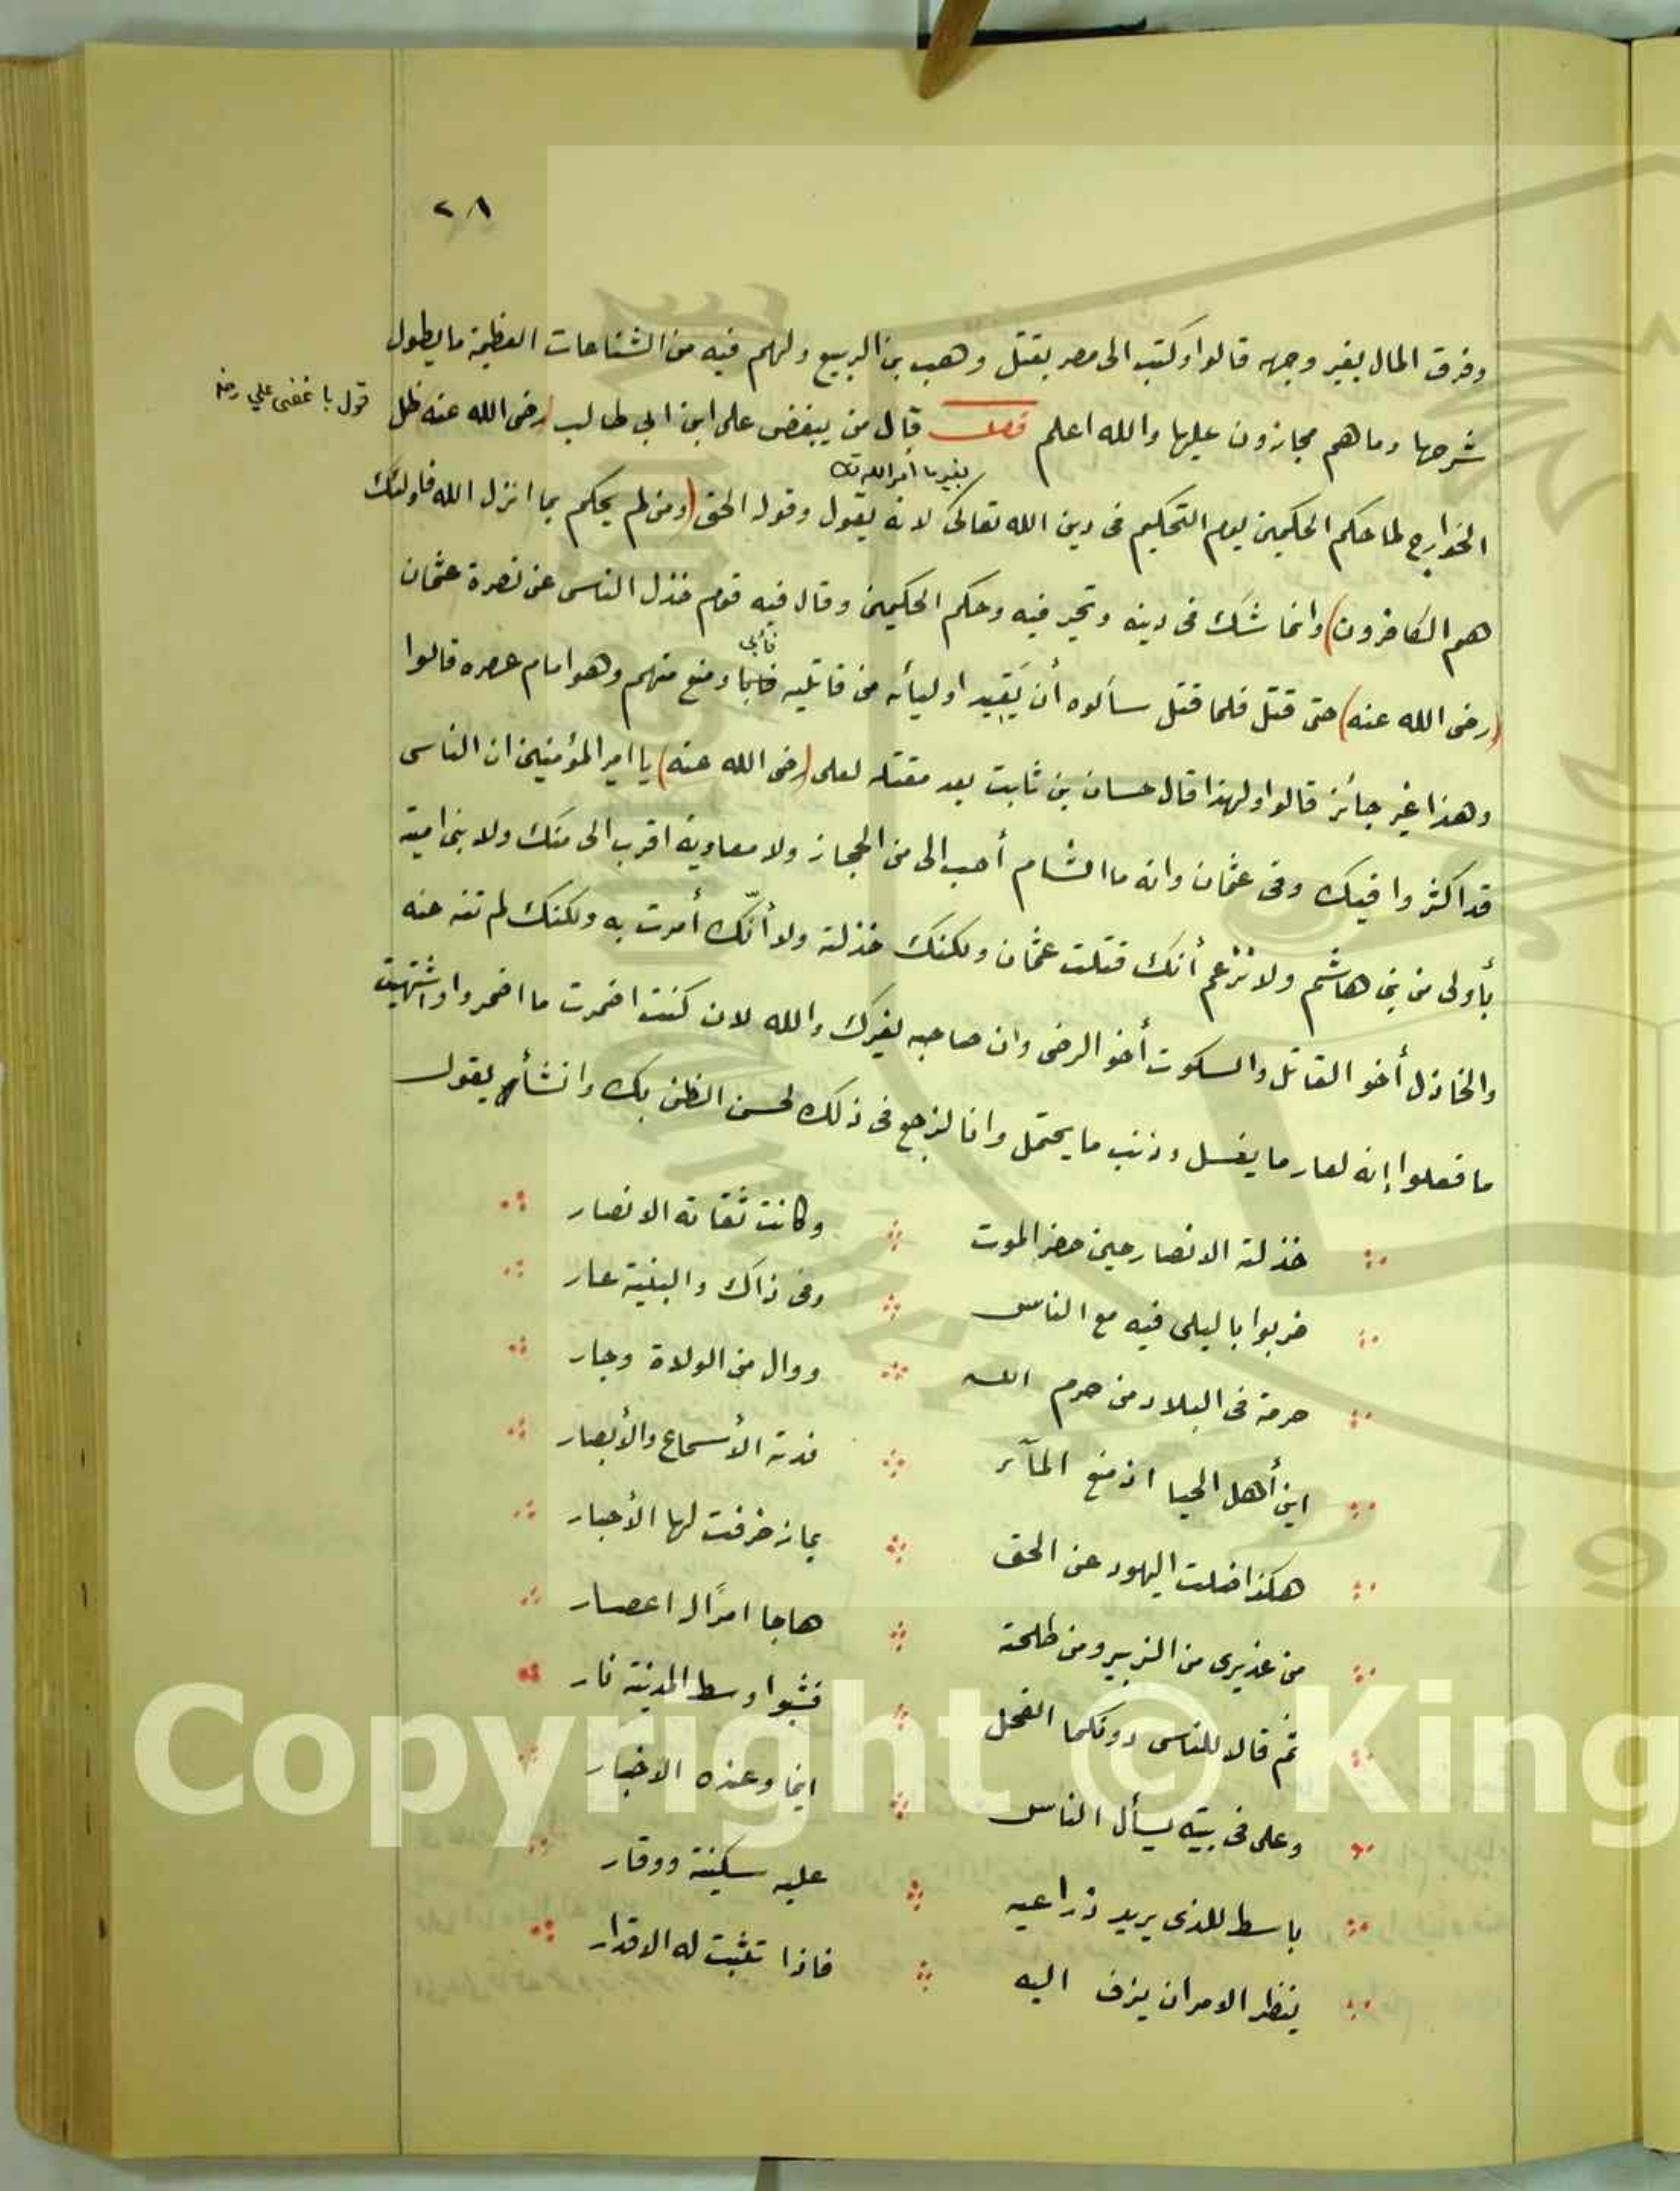 ٢٨
وفرق المال بغير وجهه قالوا وكتب الى مصر بقتل وهب بن الربيع ولهم فيه من الشناعات العظيمة ما يطول
شرحها وما هم مجازون عليها والله اعلم فصل قال من يبغض على ابن ابي طالب (رضى الله عنه ظل
قول باغضى علي رضه
بغير ما أمر الله تك
الخوارج لما حكم الحكمين يوم التحكيم فى دين الله تعالى لانه يقول وقوله الحق (ومن لم يحكم بما انزل الله فاولئك
هم الكافرون) وانما شك فى دينه وتحير فيه وحكم الحكمين وقال فيه قوم خذل الناس عن نصرة عثمان
فأبى
(رضى الله عنه) حتى قتل فلما قتل سألوه أن يقيد اوليائه من قاتليه ومنع منهم وهو امام عصره قالوا
وهذا غير جائز قالوا ولهذا قال حسان بن ثابت بعد مقتله لعلى (رضى الله عنه) يا امير المؤمنين ان الناس
قد اكثروا فيك وفى عثمان وانه ما الشام أحب الى من الحجاز ولا معاوية اقرب الى منك ولا بنى امية
بأولى من بنى هاشم ولا نزعم أنك قتلت عثمان ولكنك خذلته ولا أنّك أمرت به ولكنك لم تنه عنه
والخاذل أخو القاتل والسكوت أخو الرضى وان صاحبه لغيرك والله لان كنت اضمرت ما اضمروا واشتهيت
ما فعلوا إنه لعار ما يغسل وذنب ما يحتمل وانا لنرجع فى ذلك لحسن الظن بك وانشأ يقول
خذلته الانصار حين حضر الموت وكانت ثقاته الانصار
ضربوا با ليلى فيه مع الناس وفى ذاك والبنية عار
حرمة فى البلاد من حرم الله ووال من الولاة وجار
اين أهل الحيا اذ منع المآء فدته الأسماع والأبصار
هكذا ضلت اليهود عن الحق بما زخرفت لها الأحبار
من عذيرى من الزبير ومن طلحة هاجا امرًا له اعصار
ثم قالا للناس دونكما الفحل فشبوا وسط المدينة نار
وعلى فى بيته يسأل الناس ايما وعنده الاخبار
باسط للذى يريد ذراعيه عليه سكينة ووقار
ينظر الامر ان يزف اليه فاذا تثبت له الاقدار
Copyright © King
19